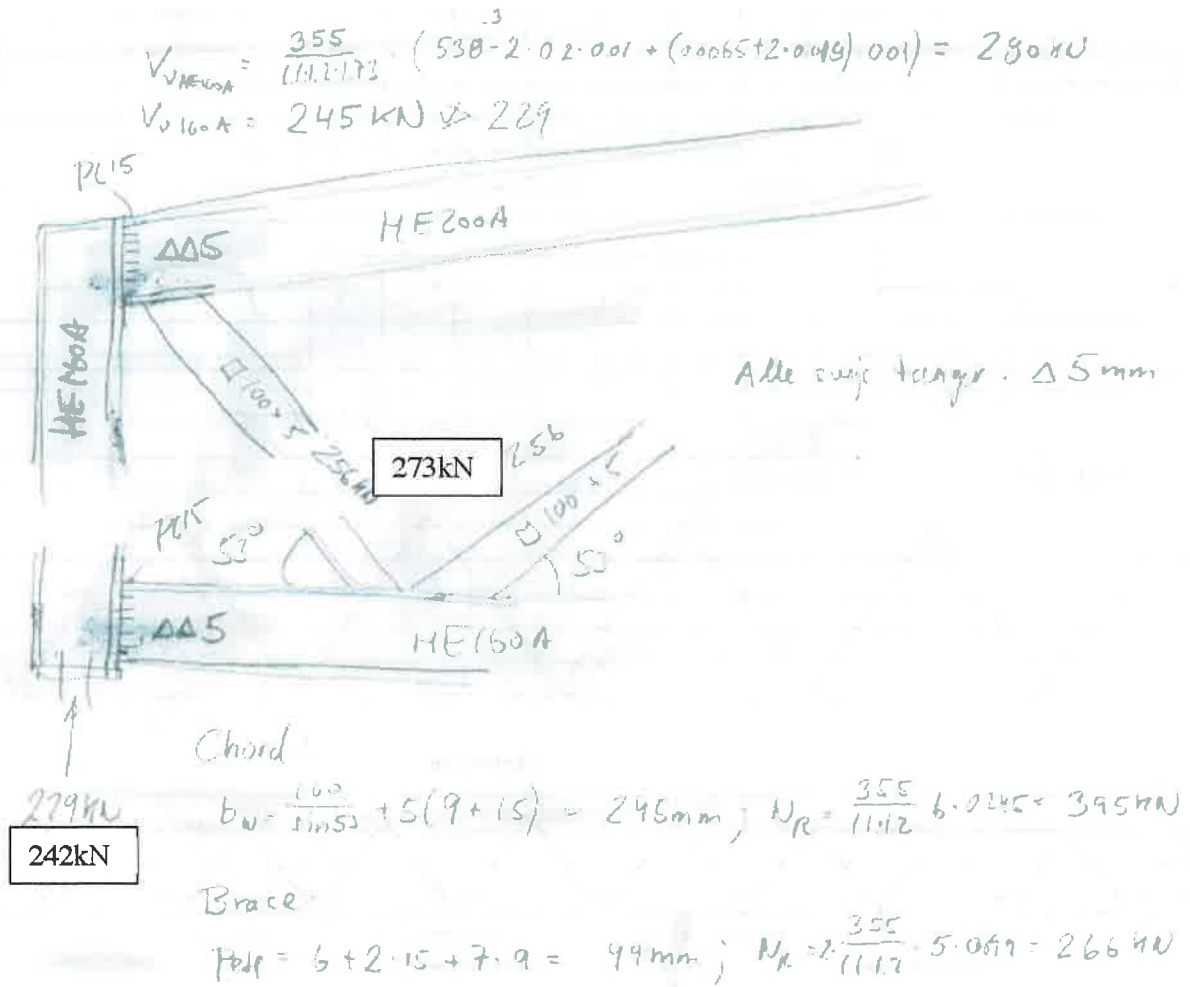 V_VHE200A = 355/(1.1·1.2·1.73) · (538·10^-3 - 2·02·001 + (00065+2·0018)·001) = 280 kN
V_V160A = 245 KN > 229
PL15
HE200A
ΔΔ5
HE160A
□100×5 256kN
273kN
256
□ 100×5
Alle · Δ5mm
PL15
53°
53°
ΔΔ5
HE160A
229kN
242kN
Chord
b_w = 100/sin53 + 5(9+15) = 245mm ; N_R = 355/(1.1·1.2) 6·0245 = 395kN
Brace
b_eff = 6+2·15+7·9 = 99mm ; N_R = 2·355/(1.1·1.2) · 5·099 = 266kN